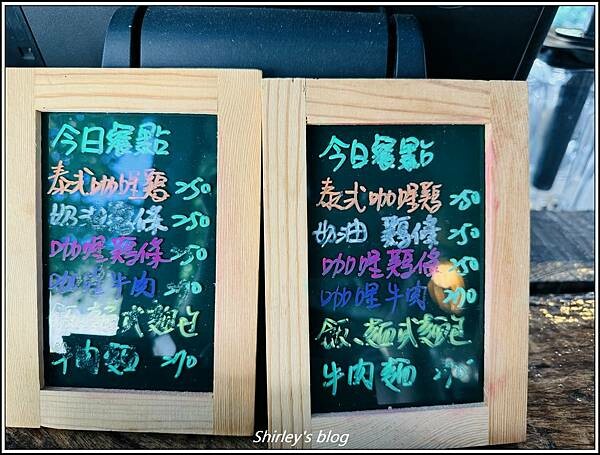 今日餐點
泰式咖哩鷄 250
奶油鷄條 250
咖哩鷄條 250
咖哩牛肉
飯、麵式麵包
牛肉麵 270
今日餐點
泰式咖哩鷄 250
奶油鷄條 250
咖哩鷄條 250
咖哩牛肉 270
飯、麵式麵包
牛肉麵
Shirley's blog